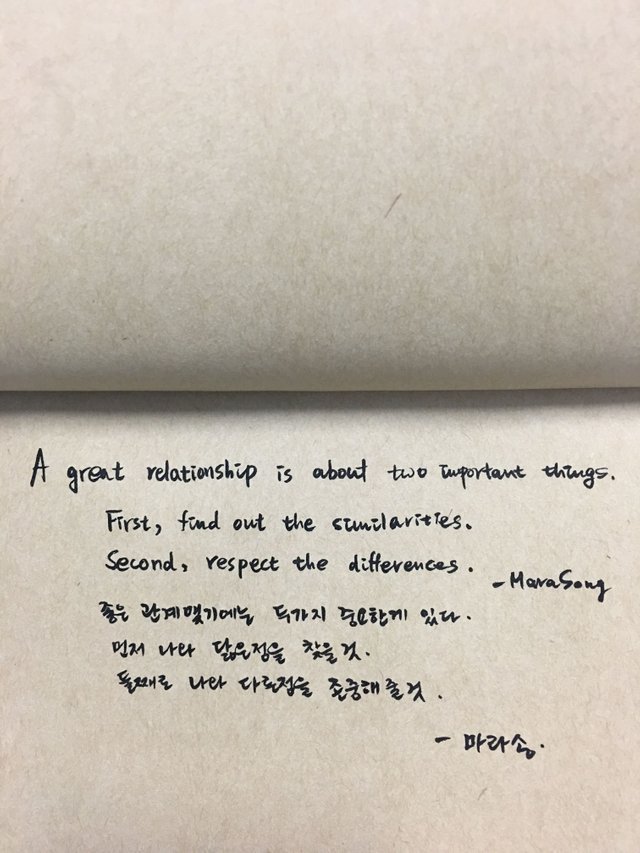 A great relationship is about two important things.
First, find out the similarities.
Second, respect the differences.
-MaraSong
좋은 관계맺기에는 두가지 중요한게 있다.
먼저 나와 닮은점을 찾을것.
둘째로 나와 다른점을 존중해줄것.
- 마라송.